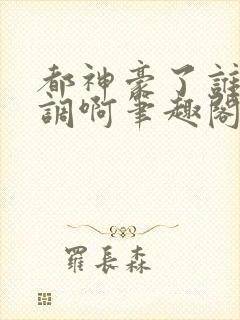 都神豪了誰
調啊筆趣閣
羅長森